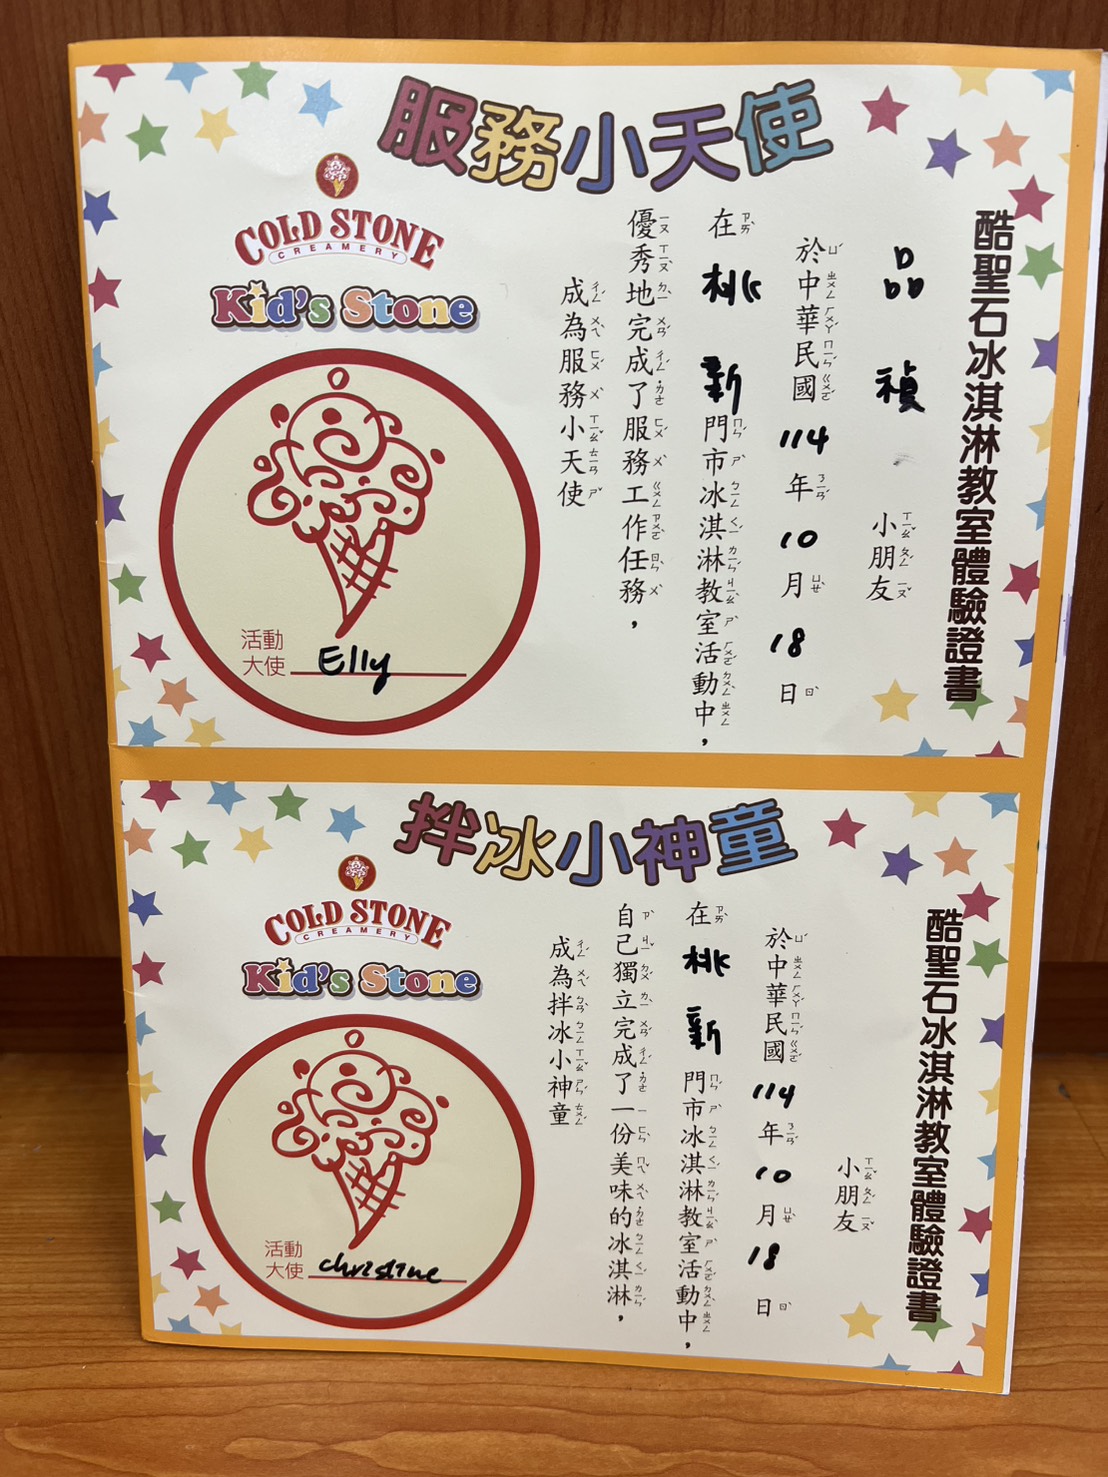 服務小天使
COLD STONE
CREAMERY
Kid's Stone
活動
大使 Elly
酷聖石冰淇淋教室體驗證書
品禎 小朋友
於中華民國114年10月18日
在桃新門市冰淇淋教室活動中，
優秀地完成了服務工作任務，
成為服務小天使
拌冰小神童
COLD STONE
CREAMERY
Kid's Stone
活動
大使 christine
酷聖石冰淇淋教室體驗證書
小朋友
於中華民國114年10月18日
在桃新門市冰淇淋教室活動中，
自己獨立完成了一份美味的冰淇淋，
成為拌冰小神童